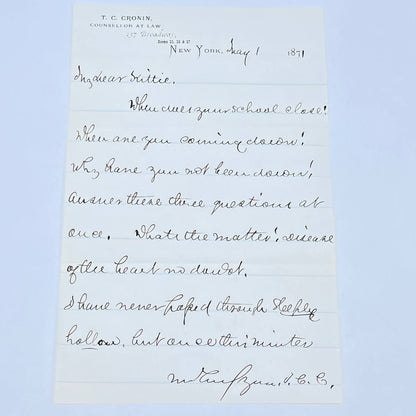 T. C. CRONIN,
COUNSELLOR AT LAW,
Broadway,
NEW YORK, May 1 1871
My dear Kittie.
When does your school close!
When are you coming down!
Why have you not been down!
answer these three questions at
once. What's the matter! Disease
of the heart no doubt.
I have never passed through Sleepy
hollow. but once this winter
T. C. C.